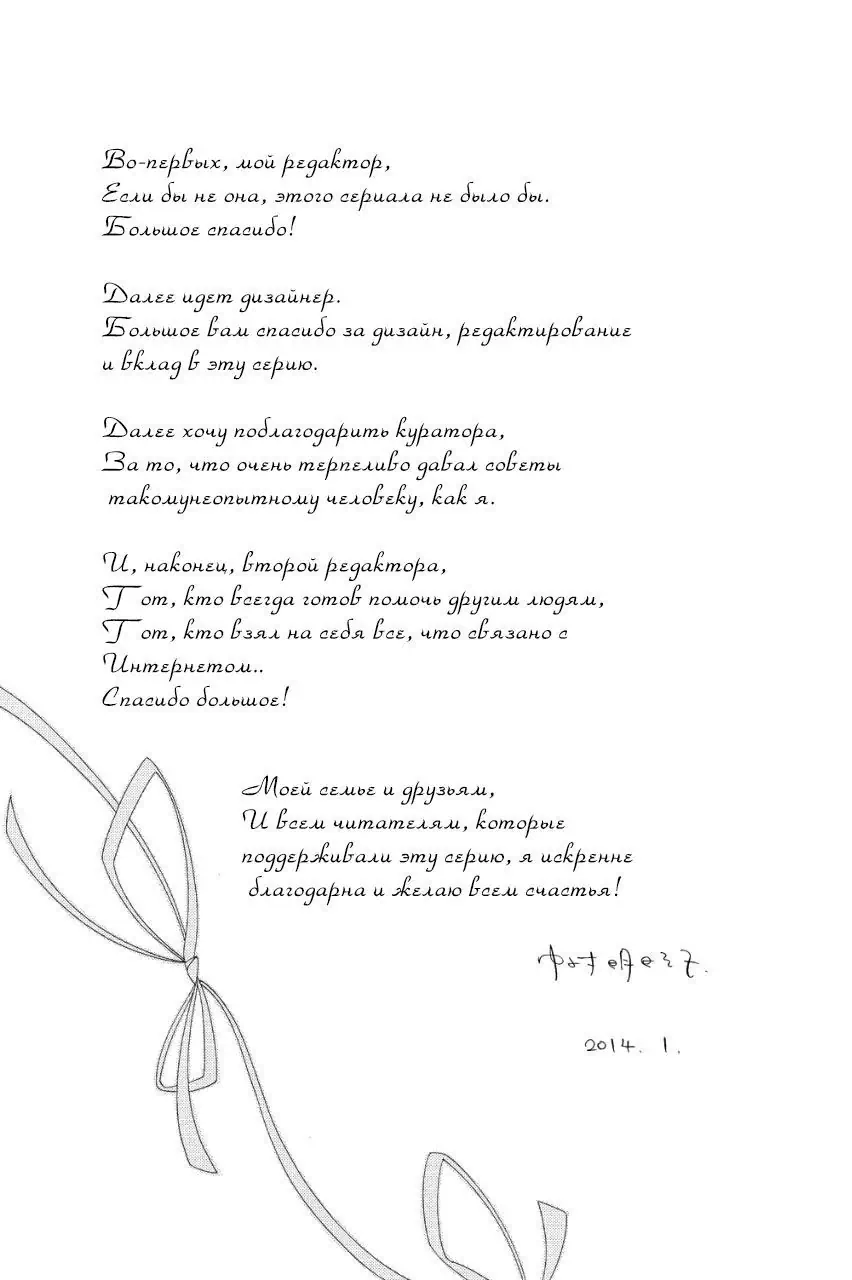 Во-первых, мой редактор,
Если бы не она, этого сериала не было бы.
Большое спасибо!
Далее идет дизайнер.
Большое вам спасибо за дизайн, редактирование
и вклад в эту серию.
Далее хочу поблагодарить куратора,
За то, что очень терпеливо давал советы
такомунеопытному человеку, как я.
И, наконец, второй редактора,
Тот, кто всегда готов помочь другим людям,
Тот, кто взял на себя все, что связано с
Интернетом..
Спасибо большое!
Моей семье и друзьям,
И всем читателям, которые
поддерживали эту серию, я искренне
благодарна и желаю всем счастья!
2014. 1.